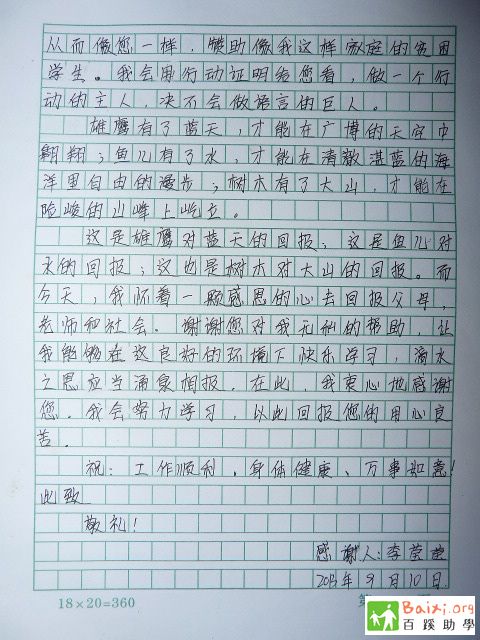 从而像您一样，赞助像我这样家庭的贫困
学生。我会用行动证明给您看，做一个行
动的主人，决不会做语言的巨人。
雄鹰有了蓝天，才能在广博的天空中
翱翔；鱼儿有了水，才能在清澈湛蓝的海
洋里自由的漫步；树木有了大山，才能在
险峻的山峰上屹立。
这是雄鹰对蓝天的回报；这是鱼儿对
水的回报；这也是树木对大山的回报。而
今天，我怀着一颗感恩的心去回报父母，
老师和社会。谢谢您对我无私的帮助，让
我能够在这良好的环境下快乐学习，滴水
之恩应当涌泉相报。在此，我衷心地感谢
您。我会努力学习，以此回报您的用心良
苦。
祝：工作顺利，身体健康、万事如意！
此致
敬礼！
感谢人：李莹莹
2013年9月10日
18×20=360
第
Baixi.org
百蹊助學